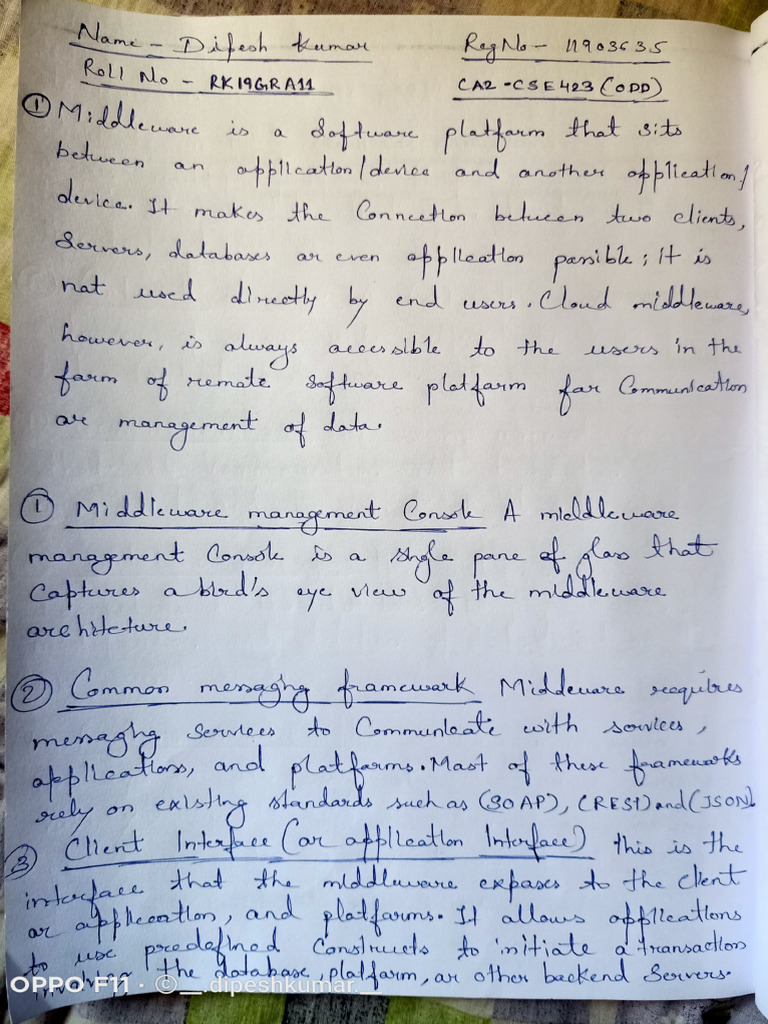 Name - Dipesh Kumar    Reg No - 11903635
Roll No - RK19GRA11    CA2 - CSE423 (ODD)
① Middleware is a software platform that sits
between an application/device and another application/
device. It makes the Connection between two clients,
Servers, databases or even application possible; it is
not used directly by end users. Cloud middleware,
however, is always accessible to the users in the
form of remote software platform for Communication
or management of data.
① Middleware management Console A middleware
management Console is a single pane of glass that
Captures a bird's eye view of the middleware
architcture.
② Common messaging framework Middeware requires
messaging Services to Communicate with sovices,
applications, and platforms. Most of these frameworks
rely on existing standards such as (SOAP), (REST) and (JSON).
③ Client Interface (or application Interface) this is the
interface that the middleware exposes to the client
or application, and platforms. It allows applications
to use predefined Constructs to initiate a transaction
the database, platform, or other backend Servers.
OPPO F11 · © __.dipeshkumar.__